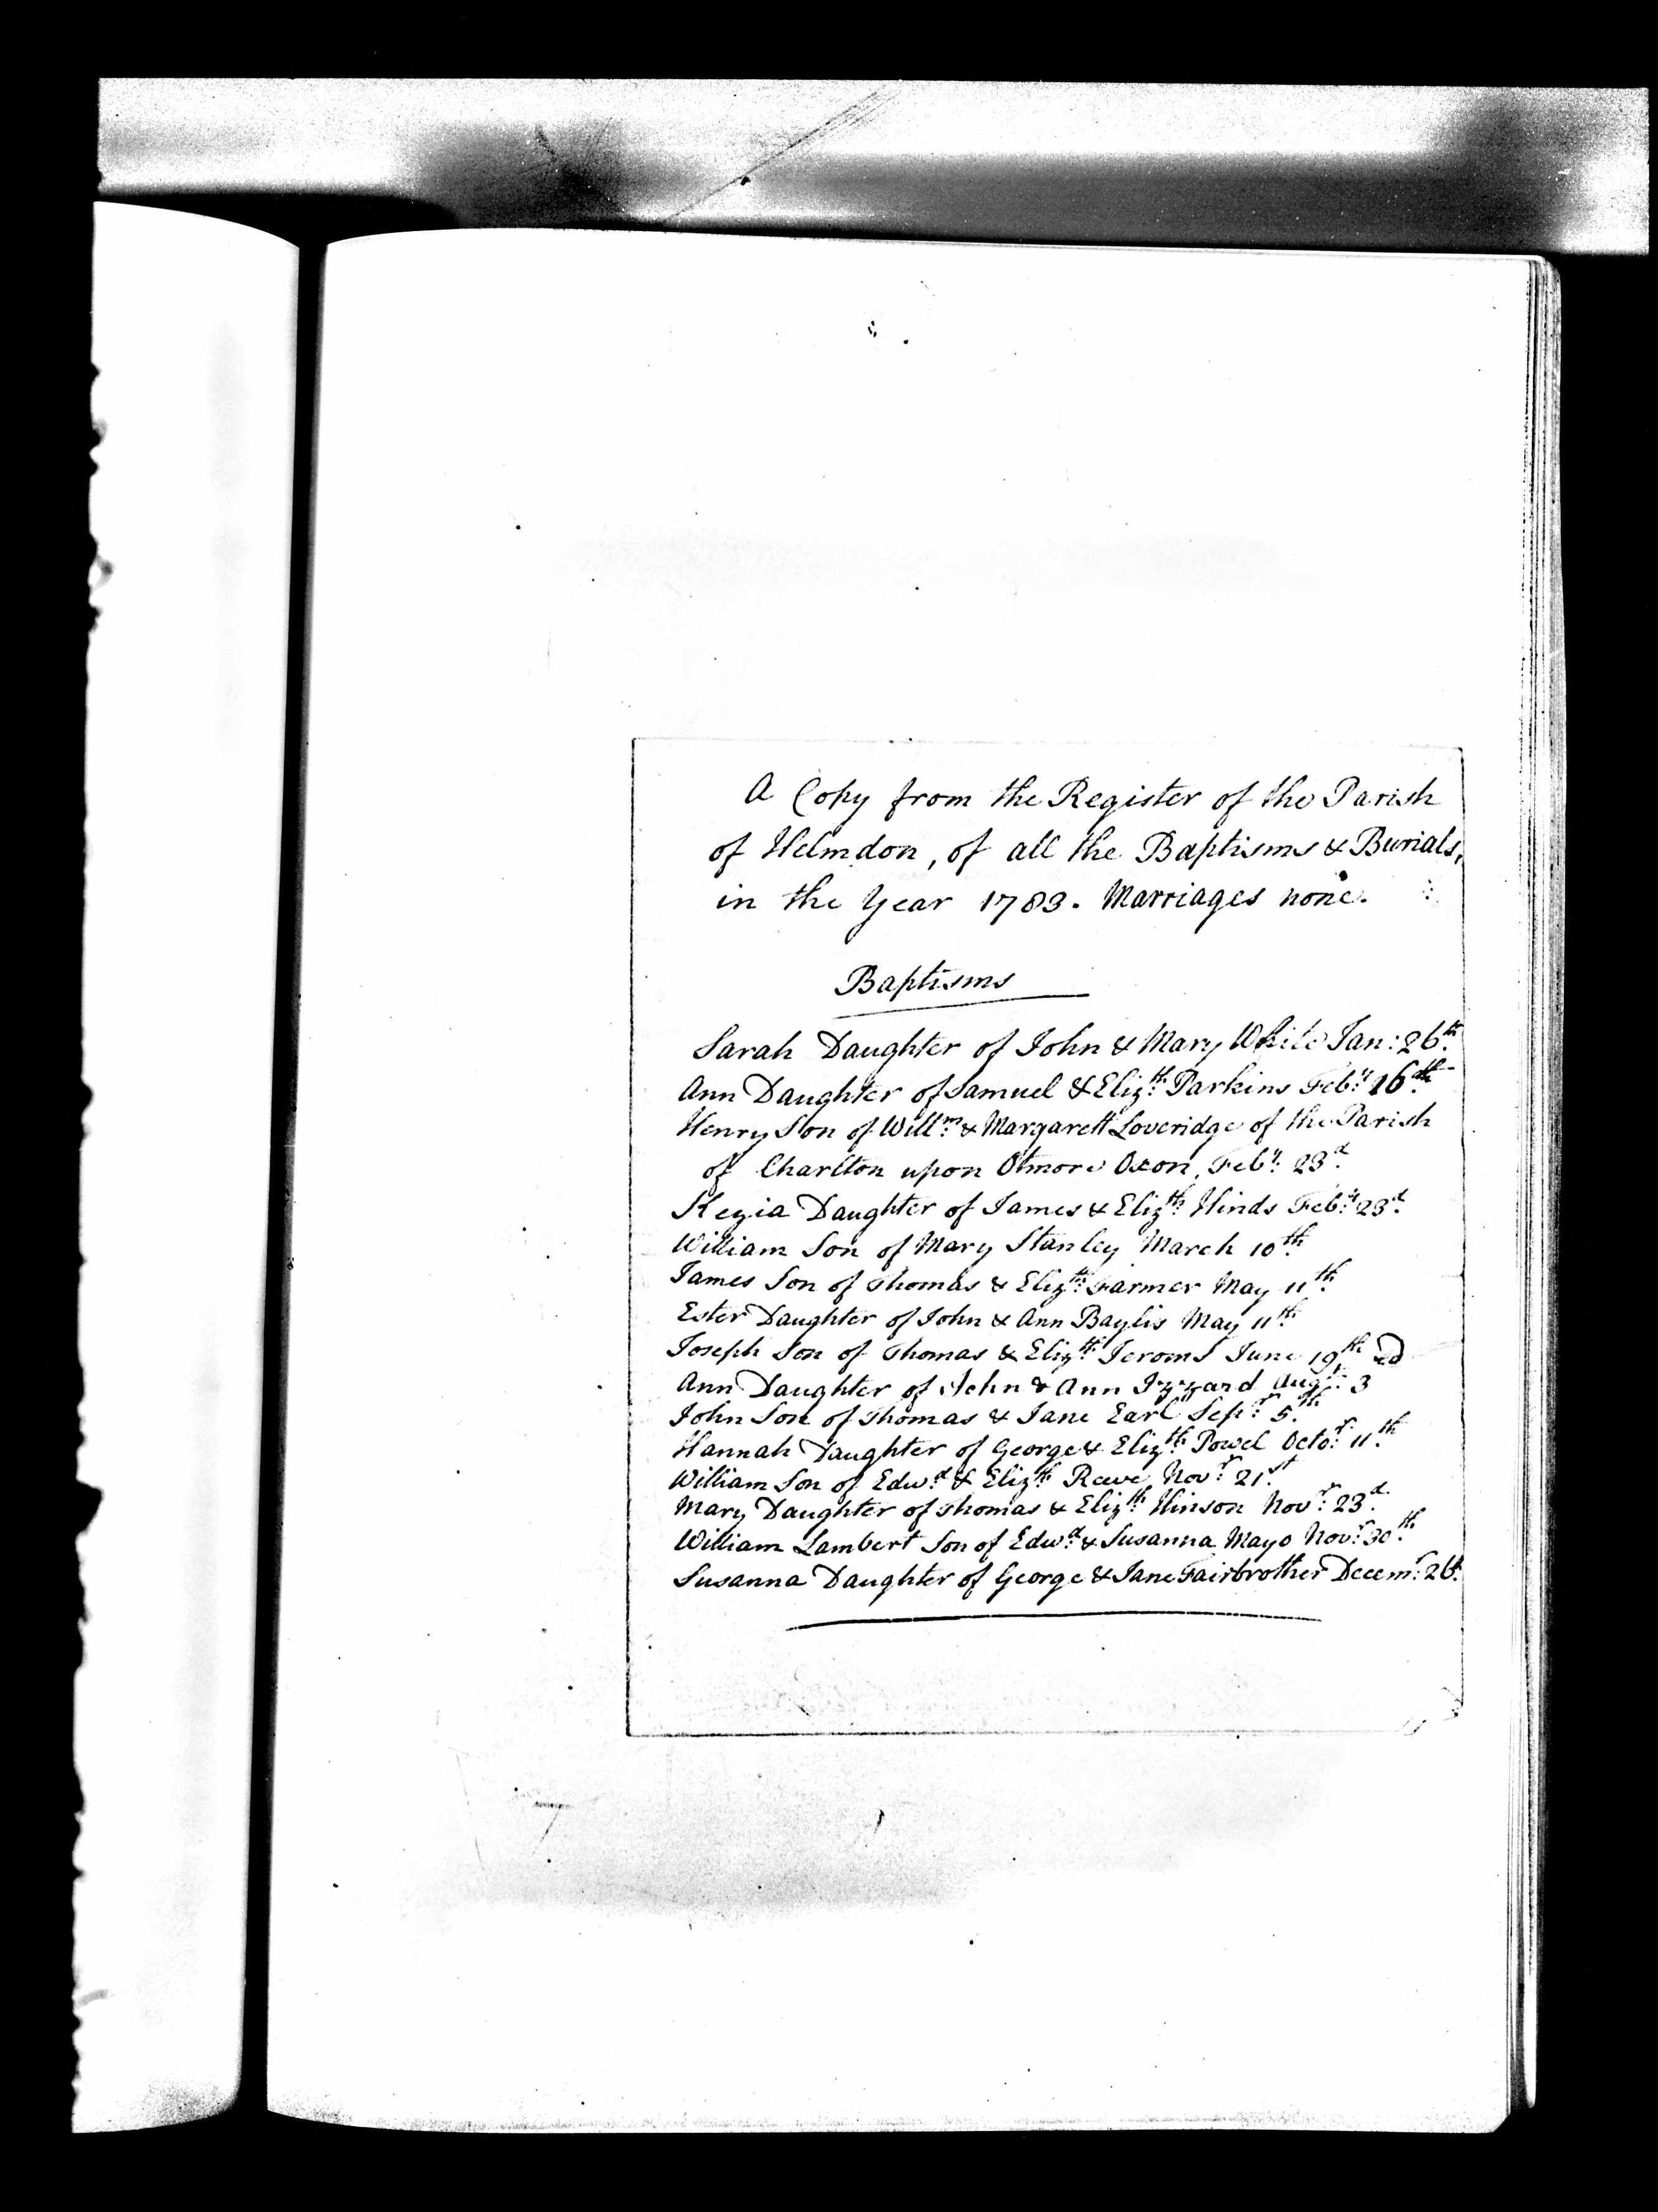 A Copy from the Register of the Parish
of Helmdon, of all the Baptisms & Burials,
in the Year 1783. Marriages none.
Baptisms
Sarah Daughter of John & Mary White Jan: 26th
Ann Daughter of Samuel & Elizth Parkins Feby 16th
Henry Son of Willm & Margarett Loveridge of the Parish
of Charlton upon Otmore Oxon, Feby 23d
Kezia Daughter of James & Elizth Hinds Feby 23d
William Son of Mary Stanley March 10th
James Son of Thomas & Elizth Farmer May 11th
Ester Daughter of John & Ann Baylis May 11th
Joseph Son of Thomas & Elizth Jeroms June 19th
Ann Daughter of John & Ann Izzard Augt 3d
John Son of Thomas & Jane Earl Sepr 5th
Hannah Daughter of George & Elizth Powel Octor 11th
William Son of Edwd & Elizth Reeve Novr 21st
Mary Daughter of Thomas & Elizth Hinson Novr 23d
William Lambert Son of Edwd & Susanna Mayo Novr 30th
Susanna Daughter of George & Jane Fairbrother Decemr 26th